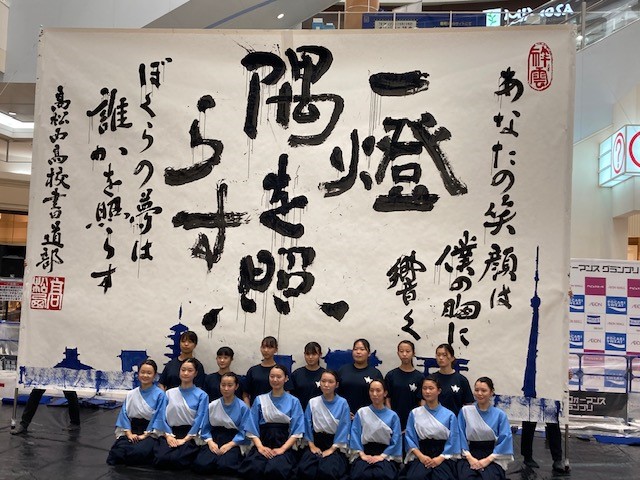 祥雲
あなたの笑顔は
僕の胸に
響く
一燈
隅を照
らす
ぼくらの夢は
誰かを照らす
高松西高校書道部
AEON
AEON